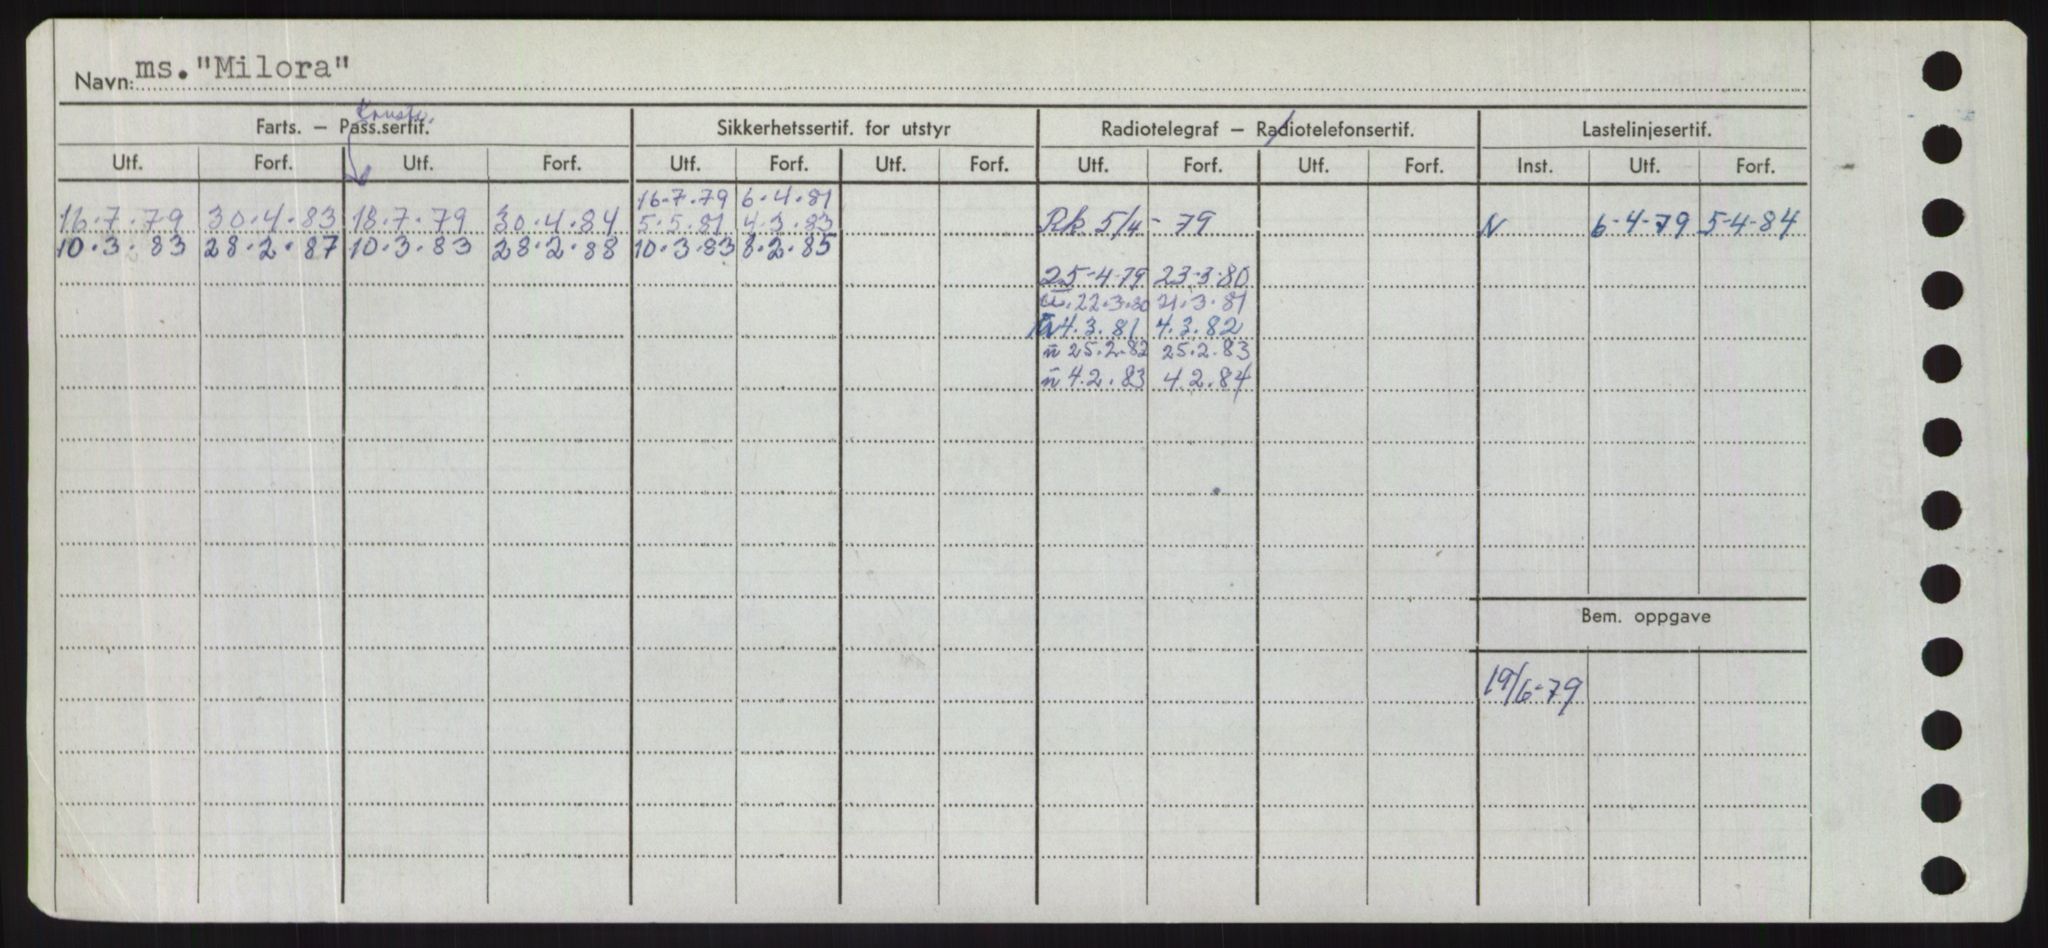 Navn: ms. "Milora"
Farts. – Pass.sertif. Sikkerhetssertif. for utstyr Radiotelegraf – Radiotelefonsertif. Lastelinjesertif.
Utf. Forf. Utf. Forf. Utf. Forf. Utf. Forf. Utf. Forf. Utf. Forf. Inst. Utf. Forf.
16.7.79 6.4.81
16.7.79 30.4.83 18.7.79 30.4.84 5.5.81 4.3.83 Rk. 5/4-79 N 6-4-79 5-4-84
10.3.83 28.2.87 10.3.83 28.2.88 10.3.83 8.2.85
25-4-79 23-3-80
22.3.80 21.3.81
4.3.81 4.3.82
25.2.82 25.2.83
4.2.83 4.2.84
Bem. oppgave
19/6-79